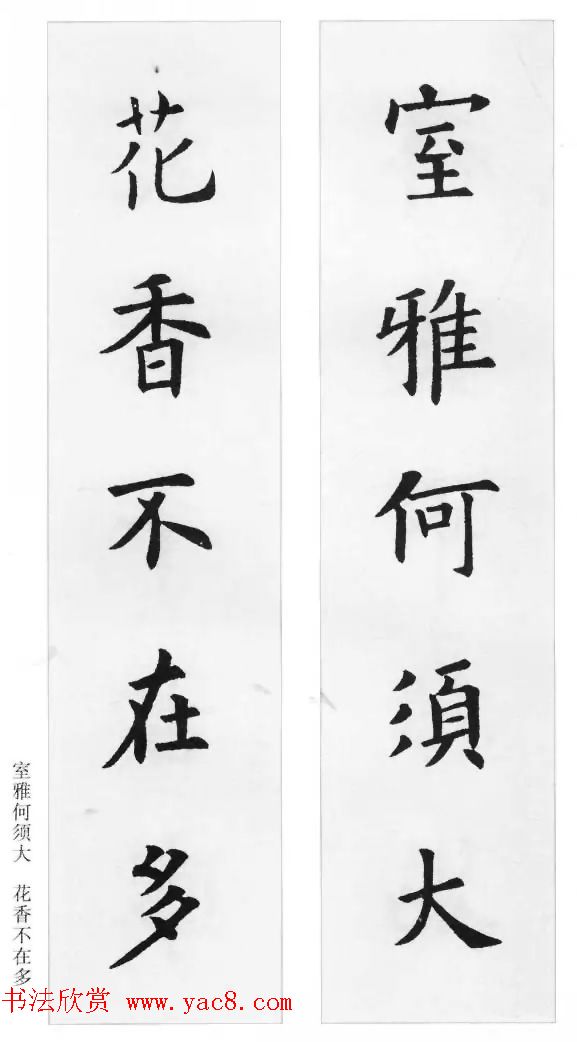 室雅何須大
花香不在多
室雅何须大 花香不在多
书法欣赏 www.yac8.com